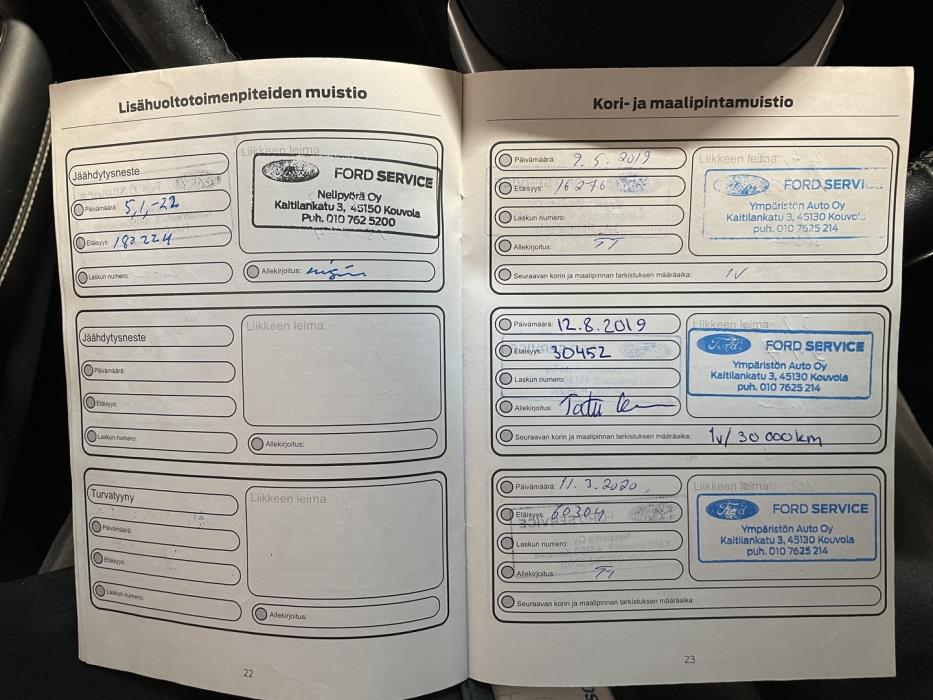 Lisähuoltotoimenpiteiden muistio
Jäähdytysneste
Päivämäärä: 5,1,-22
Etäisyys: 182224
Laskun numero:
Liikkeen leima
Ford FORD SERVICE
Nelipyörä Oy
Kaitilankatu 3, 45150 Kouvola
Puh. 010 762 5200
Allekirjoitus:
Jäähdytysneste
Päivämäärä:
Etäisyys:
Laskun numero:
Liikkeen leima
Allekirjoitus:
Turvatyyny
Päivämäärä:
Etäisyys:
Laskun numero:
Liikkeen leima
Allekirjoitus:
22
Kori- ja maalipintamuistio
Päivämäärä: 9.5.2019
Etäisyys: 16276
Laskun numero:
Allekirjoitus: TT
Liikkeen leima
Ford FORD SERVI
Ympäristön Auto Oy
Kaitilankatu 3, 45130 Kouvol
puh. 010 7625 214
Seuraavan korin ja maalipinnan tarkistuksen määräaika: 1V
Päivämäärä: 12.8.2019
Etäisyys: 30452
Laskun numero:
Allekirjoitus: Tatu
Liikkeen leima
Ford FORD SERVICE
Ympäristön Auto Oy
Kaitilankatu 3, 45130 Kouvola
puh. 010 7625 214
Seuraavan korin ja maalipinnan tarkistuksen määräaika: 1v/30 000km
Päivämäärä: 11.3.2020
Etäisyys: 60304
Laskun numero:
Allekirjoitus: TT
Liikkeen leima
Ford FORD SERVICE
Ympäristön Auto Oy
Kaitilankatu 3, 45130 Kouvola
puh. 010 7625 214
Seuraavan korin ja maalipinnan tarkistuksen määräaika:
23